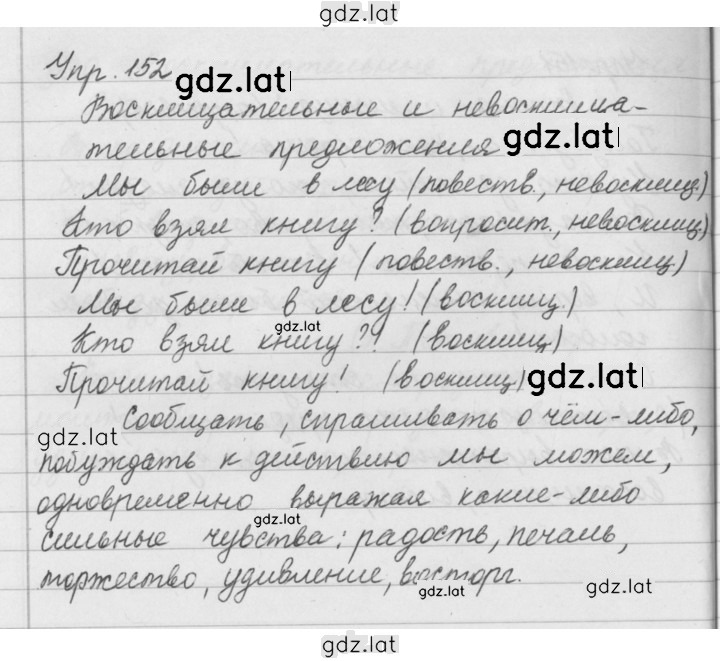 gdz.lat
Упр. 152
gdz.lat
Восклицательные и невосклица-
gdz.lat
тельные предложения
Мы были в лесу (повеств., невосклиц.)
Кто взял книгу? (вопросит., невосклиц.)
Прочитай книгу (повеств., невосклиц)
Мы были в лесу! (восклиц)
gdz.lat
Кто взял книгу?! (восклиц)
Прочитай книгу! (восклиц)
gdz.lat
Сообщать, спрашивать о чём-либо,
gdz.lat
побуждать к действию мы можем,
одновременно выражая какие-либо
gdz.lat
сильные чувства: радость, печаль,
торжество, удивление, восторг.
gdz.lat
gdz.lat
gdz.lat